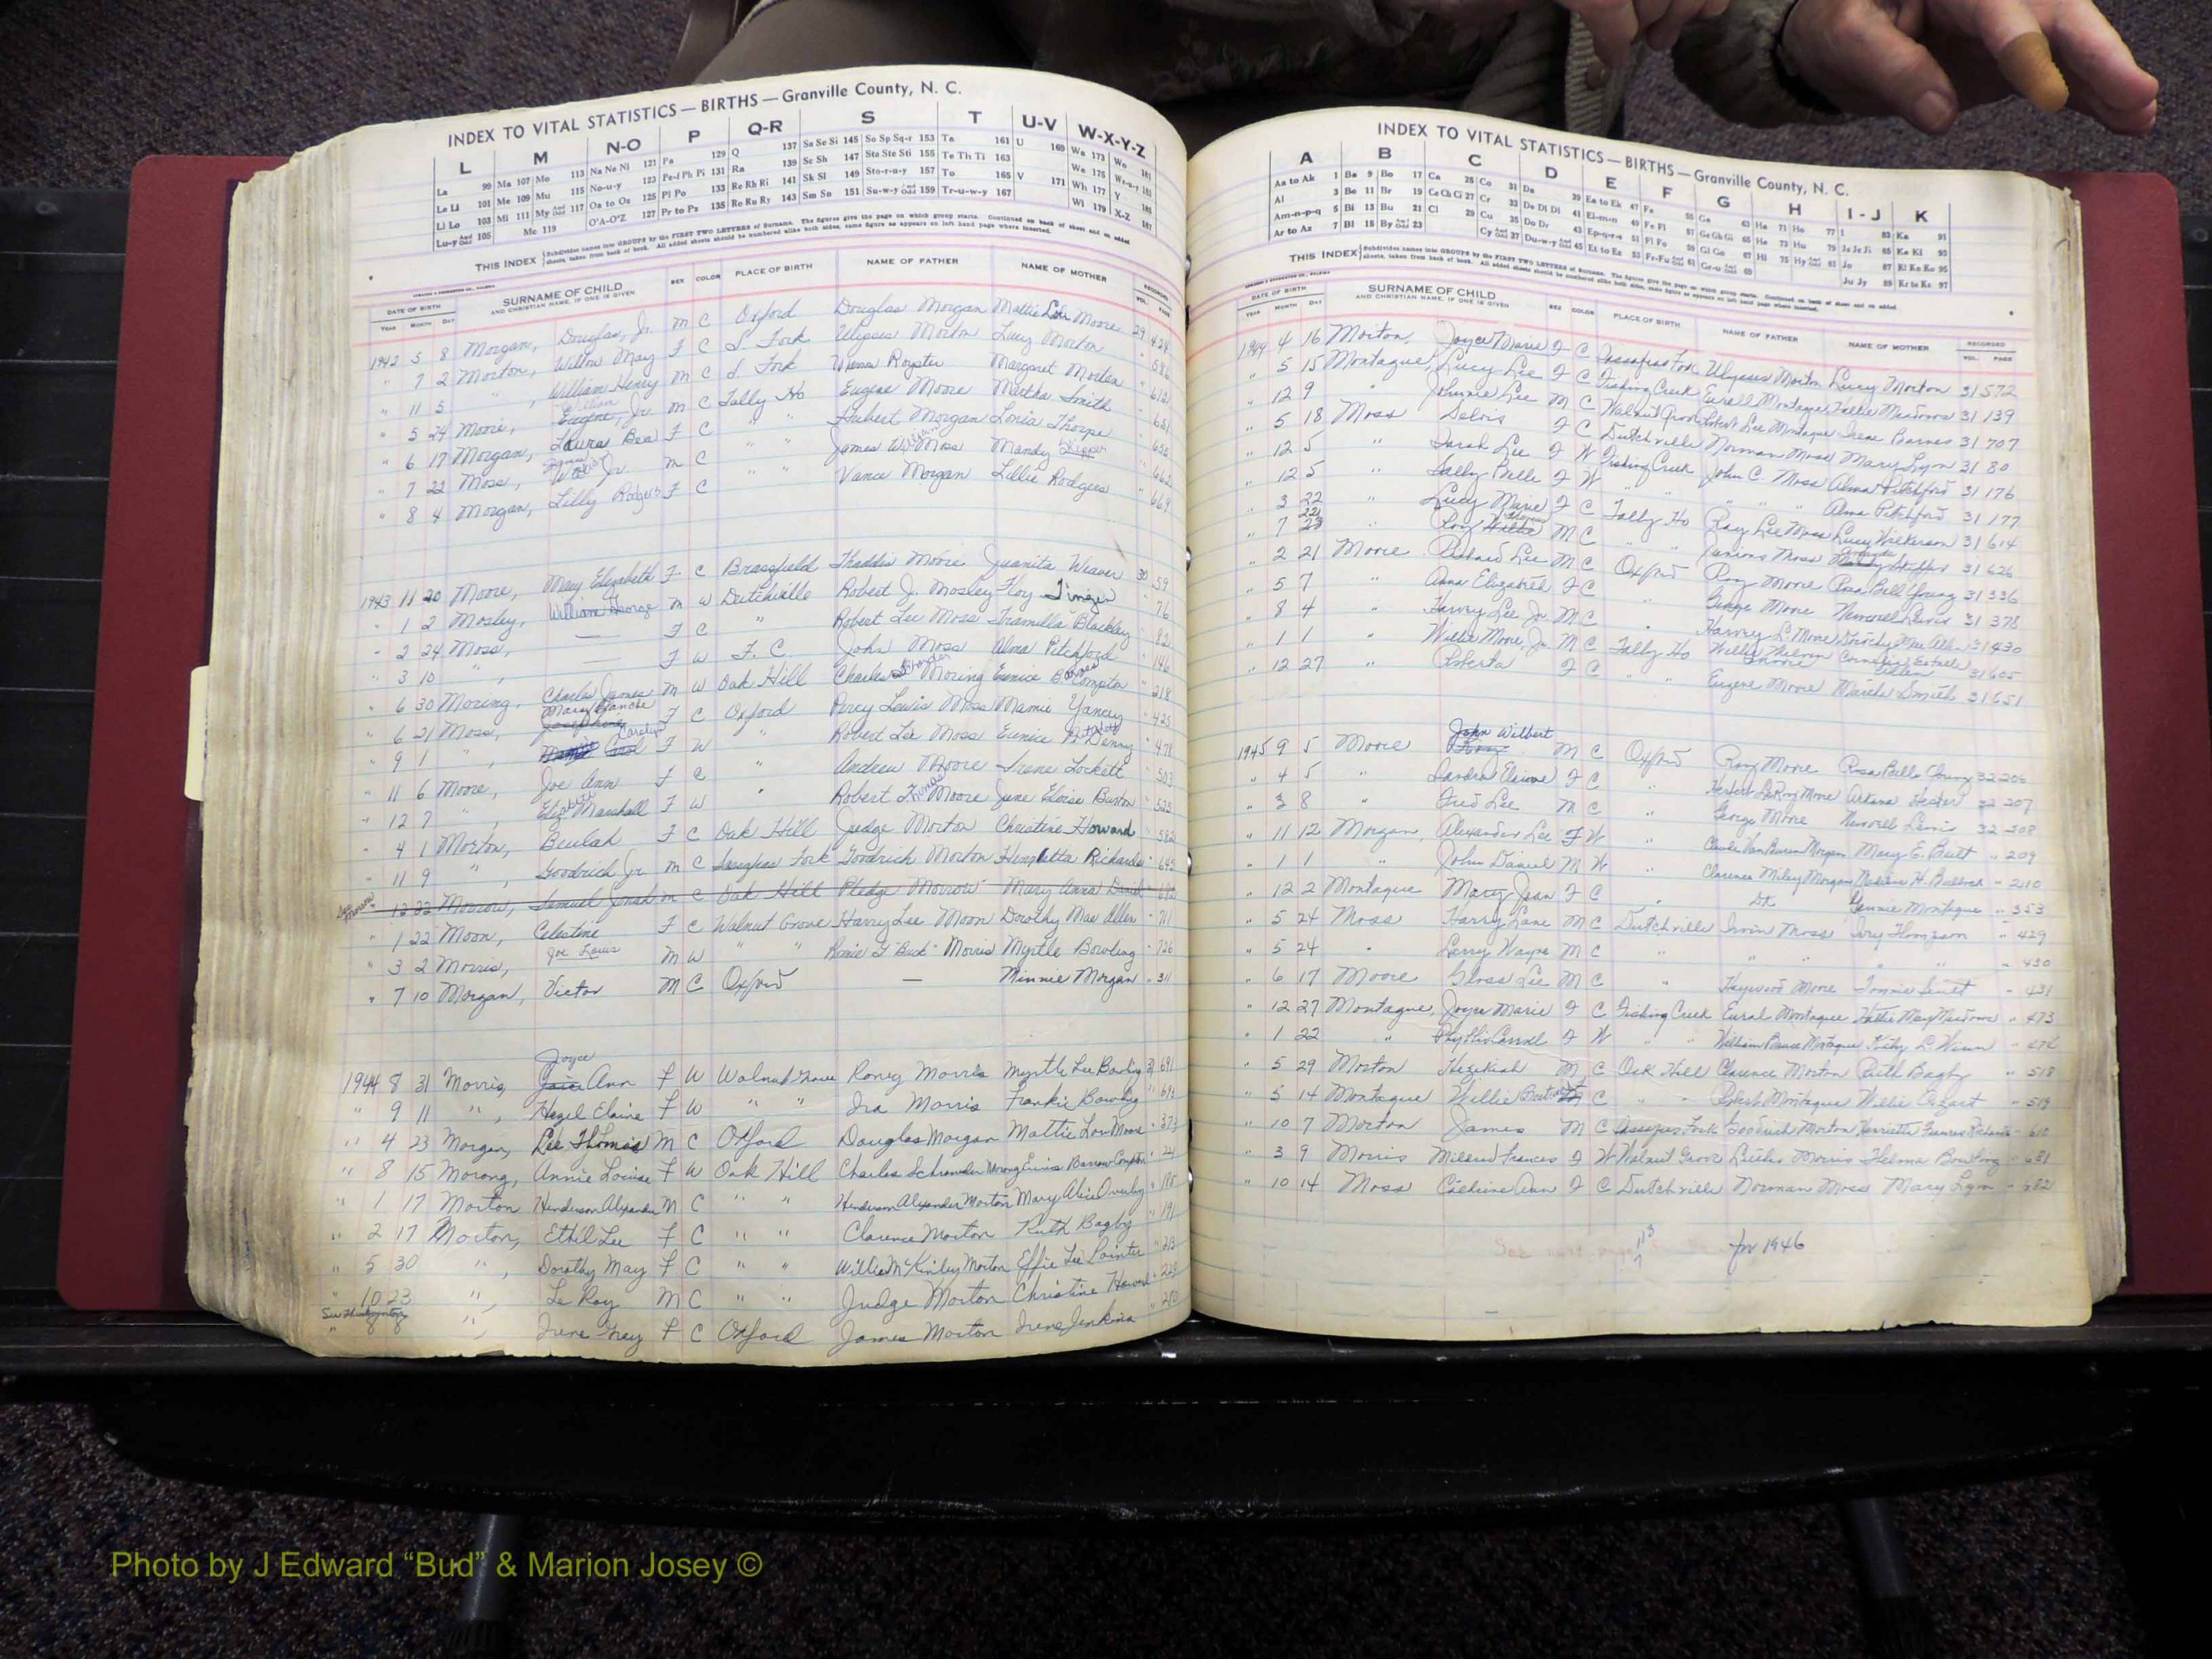 INDEX TO VITAL STATISTICS — BIRTHS — Granville County, N. C.
L M N-O P Q-R S T U-V W-X-Y-Z
La 99 Ma 107 Mo 113 Na Ne Ni 121 Pa 129 Q 137 Sa Se Si 145 So Sp Sq-r 153 Ta 161 U 169 Wa 173 Wo 181
Le Li 101 Me 109 Mu 115 No-u-y 123 Pe-f Ph Pi 131 Ra 139 Sc Sh 147 Sta Ste Sti 155 Te Th Ti 163 We 175
Li Lo 103 Mi 111 My And Odd 117 Oa to Oz 125 Pl Po 133 Re Rh Ri 141 Sk Sl 149 Sto-r-u-y 157 To 165 V 171 Wh 177 Y 185
Lu-y And Odd 105 Mc 119 O'A-O'Z 127 Pr to Pz 135 Ro Ru Ry 143 Sm Sn 151 Su-w-y And Odd 159 Tr-u-w-y 167 Wi 179 X-Z 187
THIS INDEX Subdivides names into GROUPS by the FIRST TWO LETTERS of Surname. The figures give the page on which group starts. Continued on back of sheet and on added
sheets, taken from back of book. All added sheets should be numbered alike both sides, same figure as appears on left hand page where inserted.
DATE OF BIRTH SURNAME OF CHILD SEX COLOR PLACE OF BIRTH NAME OF FATHER NAME OF MOTHER RECORDED
YEAR MONTH DAY AND CHRISTIAN NAME, IF ONE IS GIVEN VOL. PAGE
1942 5 8 Morgan, Douglas, Jr. M C Oxford Douglas Morgan Mattie Lou Moore 29 424
" 7 2 Morton, Willow May F C S. Fork Ulysses Morton Lucy Morton " 586
" 11 5 " , William Henry M C S. Fork Royster Margaret Morton " 612
" 5 24 Moore, William Eugene, Jr. M C Tally Ho Eugene Moore Martha Smith " 651
" 6 17 Morgan, Laura Bea F C " " Hubert Morgan Lonia Thorpe " 655
" 7 22 Moss, James William Jr M C " " James William Moss Mandy Skipper " 662
" 8 4 Morgan, Lilly Rodgers F C Vance Morgan Lillie Rodgers " 669
1943 11 20 Moore, Mary Elizabeth F C Brassfield Thaddis Moore Juanita Weaver 30 59
" 1 2 Mosley, William George M W Dutchville Robert J. Mosley Floy " 76
" 2 24 Moss, — F C " Robert Lee Moss Tramilla Blackley " 82
" 3 10 " , — F W F. C. John Moss Alma Pitchford " 146
" 6 30 Moring, Charles James M W Oak Hill Charles Schrander Moring Eunice Barrow Compton " 218
" 6 21 Moss, Mary Blanche Josephine F C Oxford Percy Lewis Moss Mamie Yancey " 425
" 9 1 " , Carolyn F W " Robert Lee Moss Eunice Denny " 478
" 11 6 Moore, Joe Ann F C " Andrew Moore Irene Lockett " 503
" 12 7 " , Elizabeth Marshall F W Robert Thomas Moore June Eloise Burton " 525
" 4 1 Morton, Beulah F C Oak Hill Judge Morton Christine Howard " 582
" 11 9 " , Goodrich Jr. M C Sassafras Fork Goodrich Morton Henrietta Richards " 645
12 22 Morrow, Samuel Jonah M C Oak Hill Pledge Morrow Mary Anna Daniel
" 1 22 Moon, Celestine F C Walnut Grove Harry Lee Moon Dorothy Mae Allen " 711
" 3 2 Morris, Joe Louis M W " " "Buck" Morris Myrtle Bowling " 726
" 7 10 Morgan, Victor M C Oxford — Minnie Morgan " 311
1944 8 31 Morris, Joyce Ann F W Walnut Grove Roney Morris Myrtle Lee Bowling 31 691
" 9 11 " , Hazel Elaine F W " " Ira Morris Frankie Bowling " 693
" 4 23 Morgan, Lee Thomas M C Oxford Douglas Morgan Mattie Lou Moore " 373
" 8 15 Morong, Annie Louise F W Oak Hill Charles Schrander Morong Eunice Barrow Compton " 221
" 1 17 Morton Henderson Alexander M C " " Henderson Alexander Morton Mary Alice Overby " 185
" 2 17 Morton, Ethel Lee F C " " Clarence Morton Ruth Bagby " 191
" 5 30 " , Dorothy May F C " " William McKinley Morton Effie Lee Pointer " 213
" 10 23 " , Le Roy M C " " Judge Morton Christine Howard " 225
" " , Irene Gray F C Oxford James Morton Irene Jenkins " 280
INDEX TO VITAL STATISTICS — BIRTHS — Granville County, N. C.
A B C D E F G H I-J K
Aa to Ak 1 Ba 9 Bo 17 Ca 25 Co 31 Da 39 Ea to Ek 47 Fa 55 Ga 63 Ha 71 Ho 77 I 83 Ka 91
Al 3 Be 11 Br 19 Ce Ch Ci 27 Cr 33 De Di Dl 41 El-m-n 49 Fe Fi 57 Ge Gh Gi 65 He 73 Hu 79 Ja Je Ji 85 Ke Ki 93
Am-n-p-q 5 Bi 13 Bu 21 Cl 29 Cu 35 Do Dr 43 Ep-q-r-s 51 Fl Fo 59 Gl Go 67 Hi 75 Hy And Odd 81 Jo 87 Kl Kn Ko 95
Ar to Az 7 Bl 15 By And Odd 23 Cy And Odd 37 Du-w-y And Odd 45 Et to Ez 53 Fr-Fu And Odd 61 Gr-u And Odd 69 Ju Jy 89 Kr to Kz 97
THIS INDEX Subdivides names into GROUPS by the FIRST TWO LETTERS of Surname. The figures give the page on which group starts. Continued on back of sheet and on added
sheets, taken from back of book. All added sheets should be numbered alike both sides, same figure as appears on left hand page where inserted.
DATE OF BIRTH SURNAME OF CHILD SEX COLOR PLACE OF BIRTH NAME OF FATHER NAME OF MOTHER RECORDED
YEAR MONTH DAY AND CHRISTIAN NAME, IF ONE IS GIVEN VOL. PAGE
1944 4 16 Morton, Joyce Marie F C Sassafras Fork Ulysses Morton Lucy Morton 31 572
" 5 15 Montague, Lucy Lee F C Fishing Creek Eurell Montague Hallie Meadows 31 139
" 12 9 " Johnnie Lee M C Walnut Grove Robert Lee Montague Irene Barnes 31 707
" 5 18 Moss Deloris F C Dutchville Norman Moss Mary Lyon 31 80
" 12 5 " Sarah Lee F W Fishing Creek John C. Moss Alma Pitchford 31 176
" 12 5 " Sally Belle F W " " " " Alma Pitchford 31 177
" 3 22 " Lucy Marie F C Tally Ho Ray Lee Moss Lucy Wilkerson 31 614
" 7 " Roy M C " " Moss Skipper 31 626
" 2 21 Moore Richard Lee M C Oxford Roy Moore Rosa Bell Young 31 336
" 5 7 " Anna Elizabeth F C " George Moore Newell Lewis 31 378
" 8 4 " Harvey Lee Jr. M C " Harvey L. Moore Dorothy Mae Allen 31 430
" 1 1 " Willie Moore, Jr. M C Tally Ho Willie Moore Cornelius Estelle 31 605
" 12 27 " Roberta F C " " Eugene Moore Martha Smith 31 651
1945 9 5 Moore John Wilbert M C Oxford Roy Moore Rosa Belle Young 32 206
" 4 5 " Sandra Elaine F C " Herbert LeRoy Moore Arlena Hester 32 207
" 3 8 " Fred Lee M C " George Moore Newell Lewis 32 208
" 11 12 Morgan, Alexander Lee F W " Claude Van Buren Morgan Mary E. Butt " 209
" 1 1 " John Daniel M W " Clarence Wiley Morgan H. Bullock " 210
" 12 2 Montague Mary Jean F C " Montague " 353
" 5 24 Moss Harry Lane M C Dutchville Irvin Moss Ivey Thompson " 429
" 5 24 " Larry Wayne M C " " " " " 430
" 6 17 Moore Gloss Lee M C " Haywood Moore " 431
" 12 27 Montague, Joyce Marie F C Fishing Creek Eural Montague Hattie May Meadows " 473
" 1 22 " Phyllis Carrol F W " " William Bruce Montague Winn " 476
" 5 29 Morton Hezekiah M C Oak Hill Clarence Morton Ruth Bagby " 518
" 5 14 Montague Willie C " " Robert Montague Willie " 519
" 10 7 Morton James M C Sassafras Fork Goodrich Morton Henrietta Frances Richards " 610
" 3 9 Morris Mildred Frances F W Walnut Grove Luther Morris Thelma Bowling " 681
" 10 14 Moss Catherine Ann F C Dutchville Norman Moss Mary Lyon " 682
113 for 1946
Photo by J Edward "Bud" & Marion Josey ©